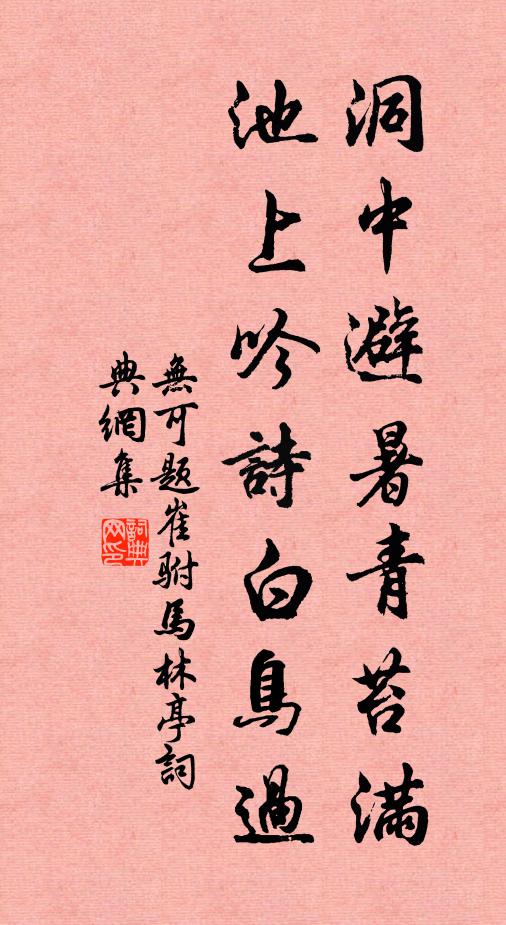 洞中避暑青苔滿
池上吟詩白鳥過
無可題崔駙馬林亭詞
典網集
詞典网印